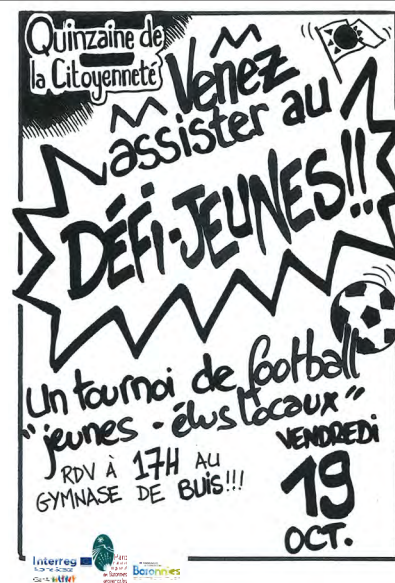 Quinzaine de
la Citoyenneté
Venez
assister au
DÉFI-JEUNES!!
Un tournoi de football
"jeunes - élus locaux"
VENDREDI
19
OCT.
RDV À 17H AU
GYMNASE DE BUIS!!!
Interreg
Baronnies